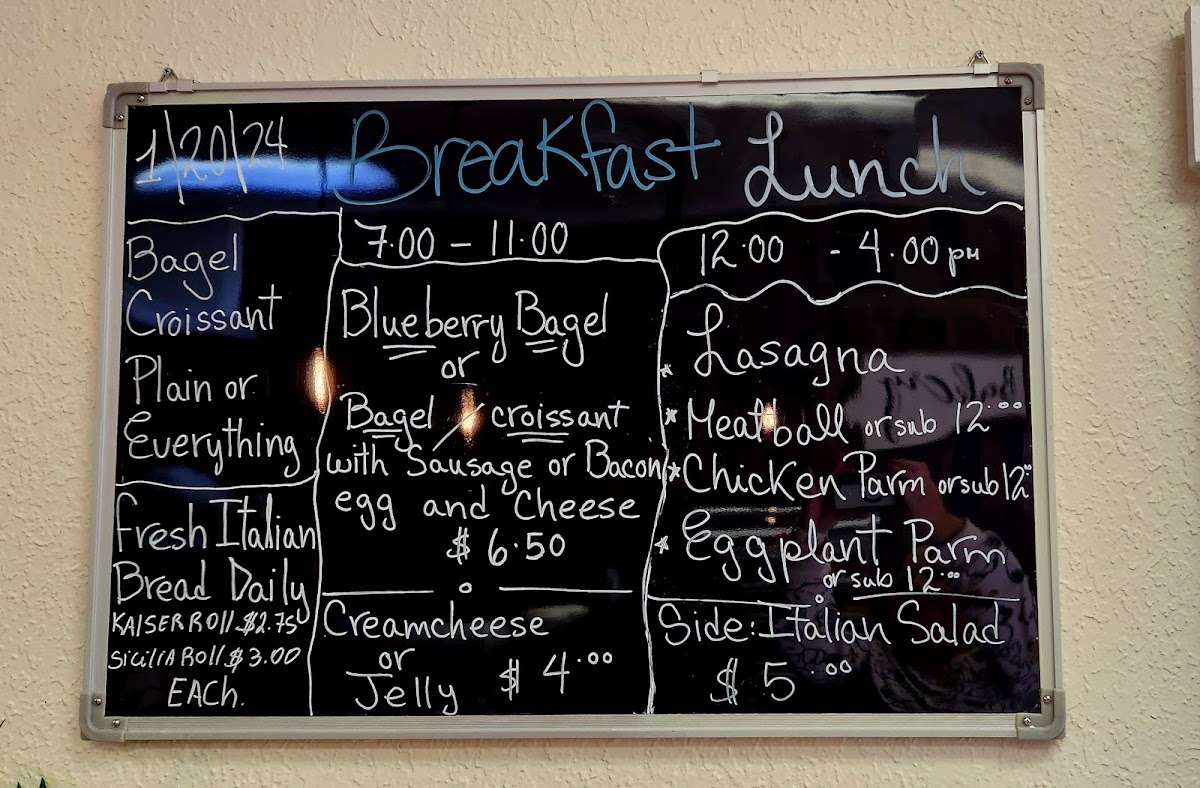 1/20/24
Breakfast
Lunch
Bagel
Croissant
Plain or
Everything
Fresh Italian
Bread Daily
KAISER Roll $2.75
SiciliA Roll $3.00
EACh.
7:00 - 11:00
Blueberry Bagel
or
Bagel / croissant
with Sausage or Bacon
egg and Cheese
$ 6.50
Creamcheese
or
Jelly $ 4.00
12:00 - 4:00 pm
* Lasagna
* Meatball or sub 12.00
* Chicken Parm or sub 12.00
* Eggplant Parm
or sub 12.00
Side: Italian Salad
$ 5.00